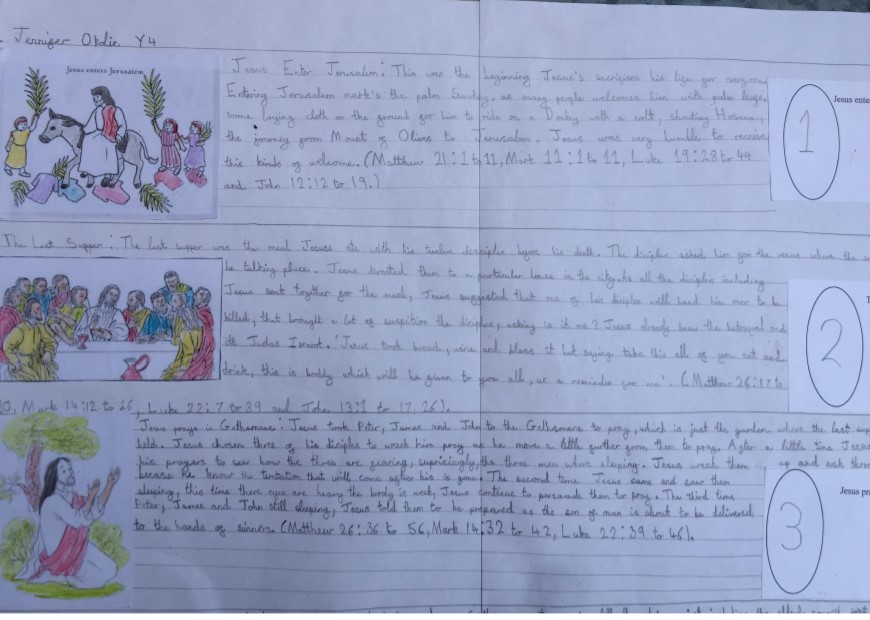 Jennifer Okolie Y4
Jesus enters Jerusalem
Jesus Enter Jerusalem: This was the beginning Jesus's sacrifises his life for everyone.
Entering Jerusalem mark's the palm Sunday, as many people welcomes him with palm leafs,
some laying cloth on the ground for him to ride on a Donkey with a colt, shouting Hosanna,
the journey from Mount of Olives to Jerusalem. Jesus was very humble to receive
this kinds of welcome. (Matthew 21:1 to 11, Mark 11:1 to 11, Luke 19:28 to 44
and John 12:12 to 19.)
Jesus ente
1
The Last Supper: The last supper was the meal Jesus ate with his twelve disciples before his death. The disciples asked him for the venue where the
be talking place. Jesus directed them to a particular house in the city. As all the disciples including
Jesus seat together for the meal, Jesus suggested that one of his disciples will hand him over to be
killed, that brought a lot of suspition the disciples, asking is it me? Jesus already knew the betrayal and
its Judas Iscariot. 'Jesus took bread, wine and bless it but saying take this all of you eat and
drink, this is boddy which will be given to you all, as a reminder for me'. (Matthew 26:17 to
30, Mark 14:12 to 26, Luke 22:7 to 39 and John 13:1 to 17, 26).
2
Jesus prays in Gethsemane: Jesus took Peter, James and John to the Gethsemane to pray, which is just the garden where the last
held. Jesus chosen three of his disciples to watch him pray as he move a little further from them to pray. After a little time Jesus
his prayers to see how the three are fearing, suprisingly, the three men where sleeping. Jesus them up and ask them
because he know the temtation that will come after his is gone. The second time Jesus came and saw them
sleeping, this time there eyes are heavy the body is weak, Jesus continue to persuade them to pray. The third time
Peter, James and John still sleeping, Jesus told them to be prepared as the son of man is about to be delivered
to the hands of sinners. (Matthew 26:36 to 56, Mark 14:32 to 42, Luke 22:39 to 46).
Jesus pr
3